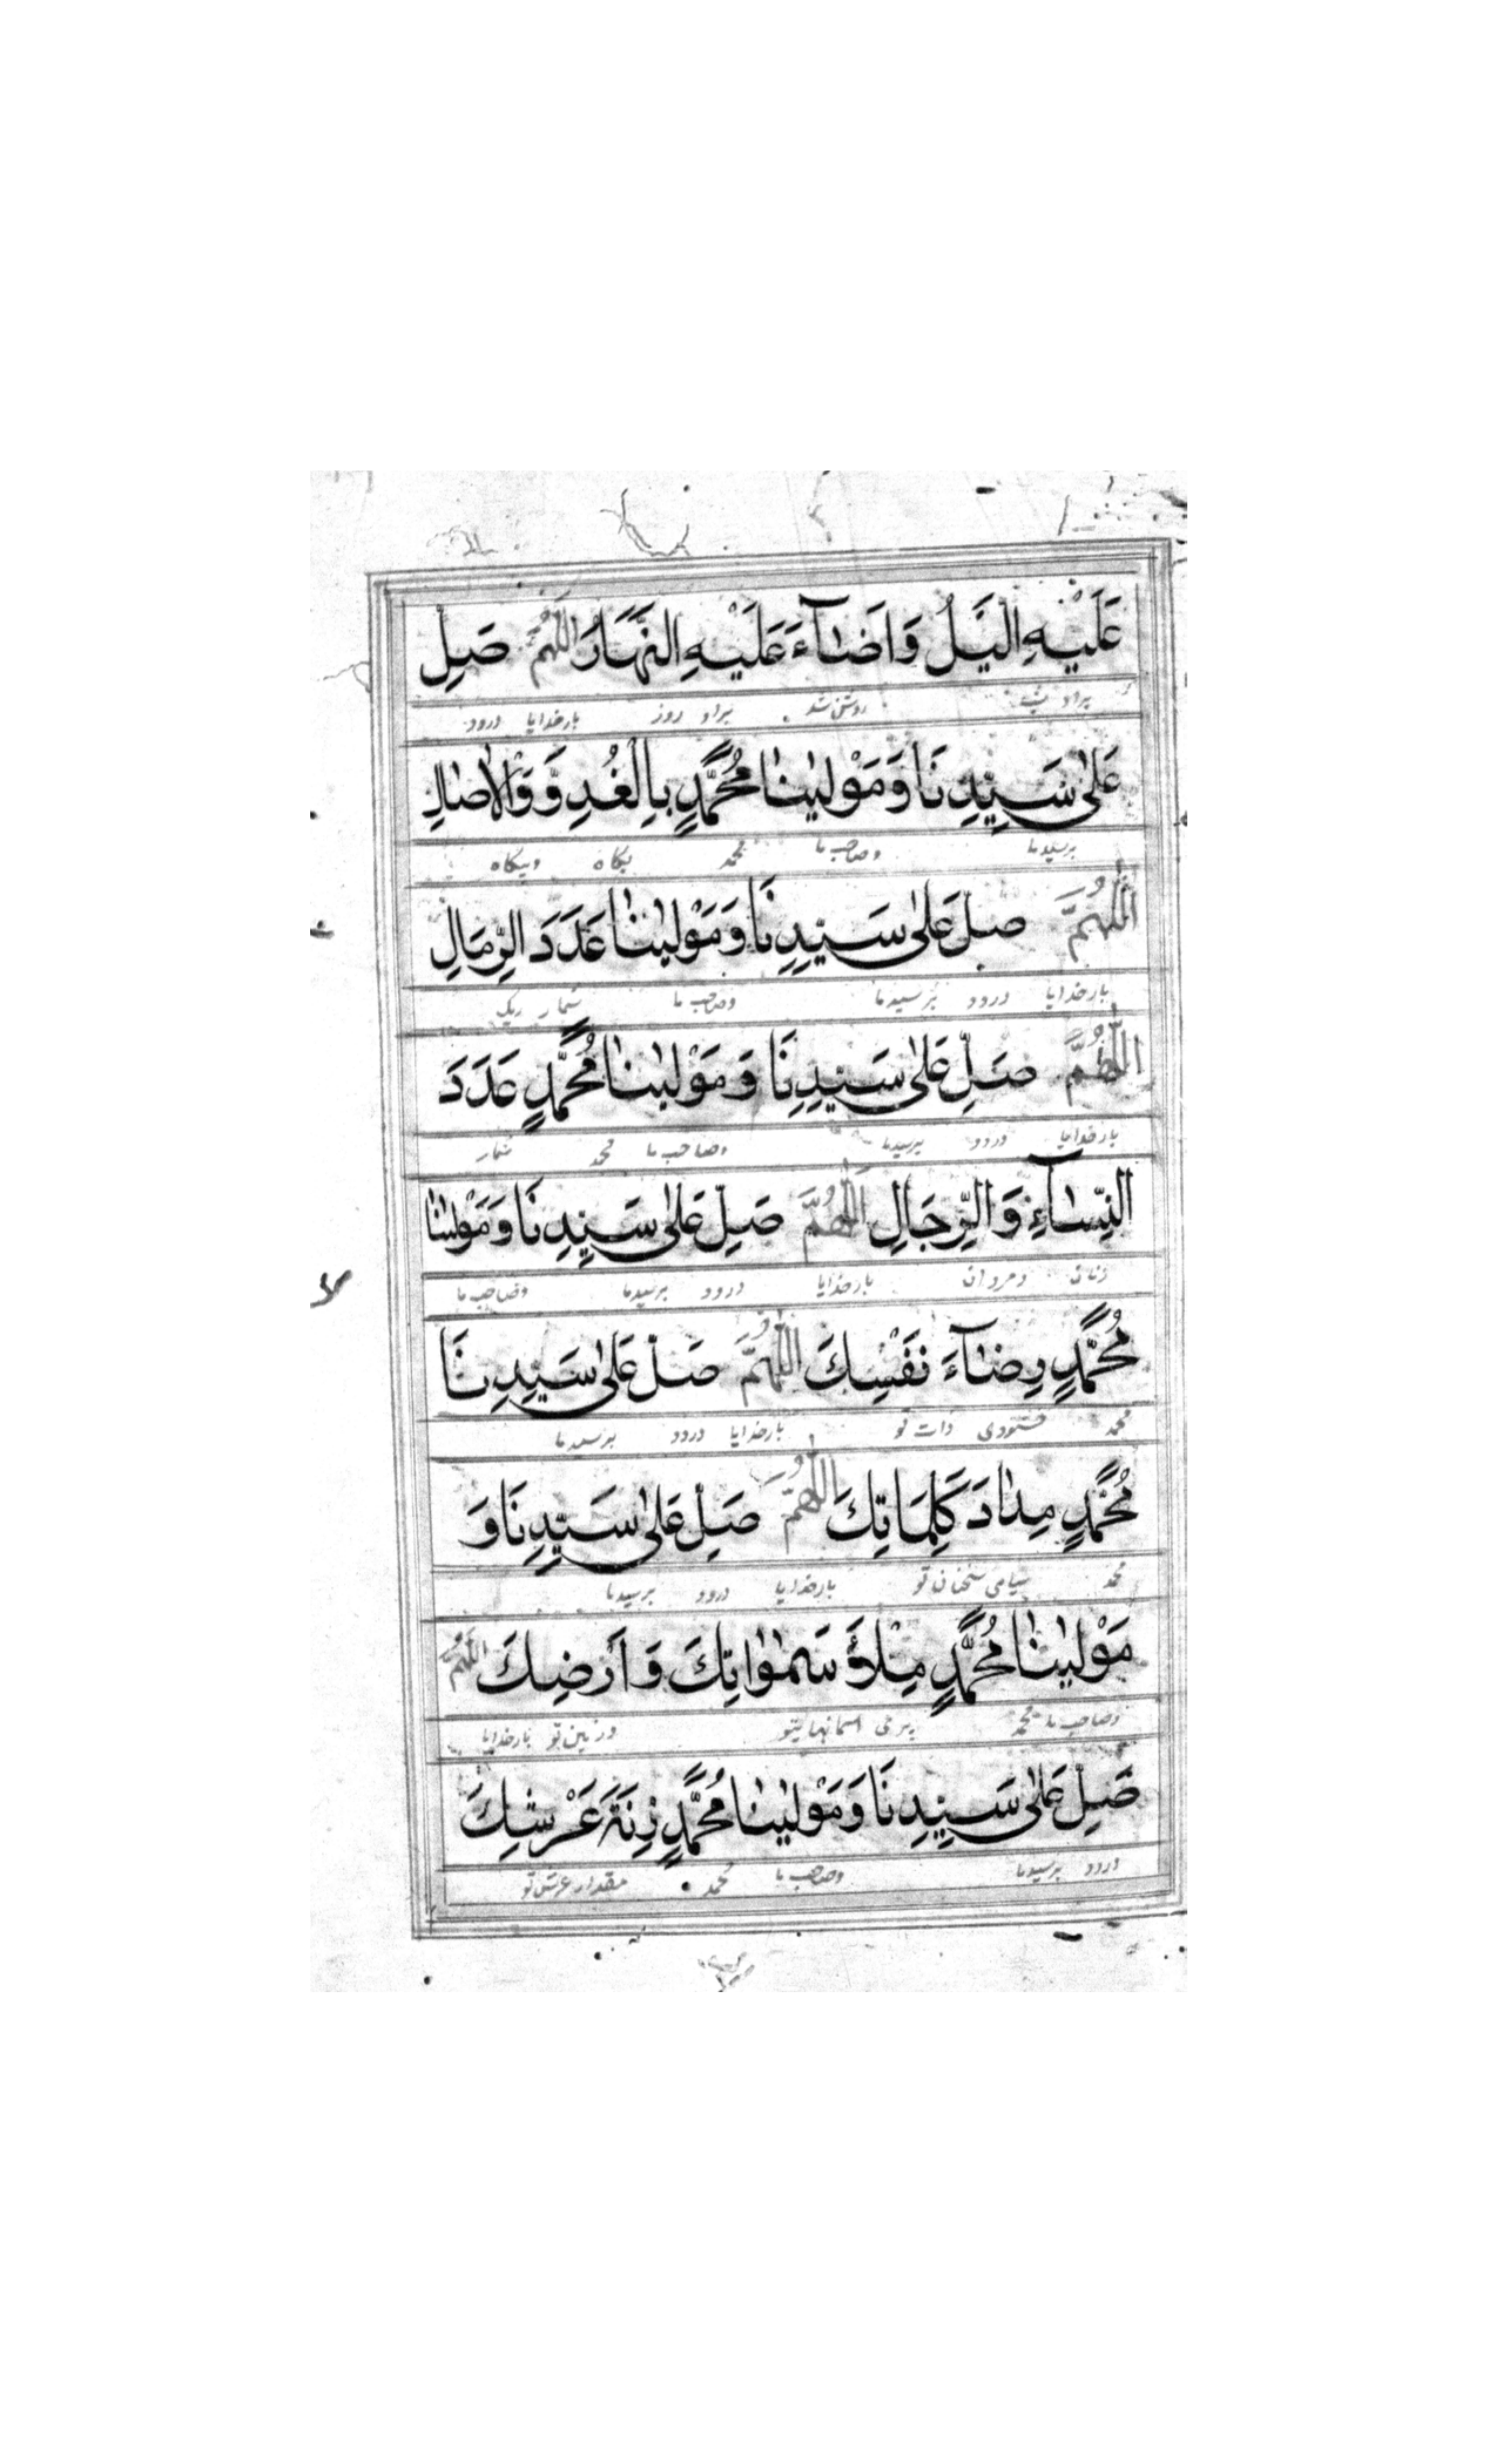 عَلَيْهِ الَّيْلُ وَاَضَآءَ عَلَيْهِ النَّهَارُ اَللّٰهُمَّ صَلِّ
براو شب روشن شد براو روز بارخدایا درود
عَلٰى سَيِّدِنَا وَمَوْلٰينَا مُحَمَّدٍ بِالْغُدُوِّ وَالْاٰصَالِ
برسیدما وصاحب ما محمد بکاه وبیکاه
اَللّٰهُمَّ صَلِّ عَلٰى سَيِّدِنَا وَمَوْلٰينَا عَدَدَ الرِّمَالِ
بارخدایا درود برسیدما وصاحب ما شمار ریک
اَللّٰهُمَّ صَلِّ عَلٰى سَيِّدِنَا وَمَوْلٰينَا مُحَمَّدٍ عَدَدَ
بارخدایا درود برسیدما وصاحب ما محمد شمار
النِّسَآءِ وَالرِّجَالِ اَللّٰهُمَّ صَلِّ عَلٰى سَيِّدِنَا وَمَوْلٰينَا
زنان ومردان بارخدایا درود برسیدما وصاحب ما
مُحَمَّدٍ رِضَآءَ نَفْسِكَ اَللّٰهُمَّ صَلِّ عَلٰى سَيِّدِنَا
محمد خشنودی ذات تو بارخدایا درود برسیدما
مُحَمَّدٍ مِدَادَ كَلِمَاتِكَ اَللّٰهُمَّ صَلِّ عَلٰى سَيِّدِنَا وَ
محمد سیاهی سخنان تو بارخدایا درود برسیدما
مَوْلٰينَا مُحَمَّدٍ مِلْأَ سَمٰوٰاتِكَ وَاَرْضِكَ اَللّٰهُمَّ
وصاحب ما محمد پری اسمانهایتو وزمین تو بارخدایا
صَلِّ عَلٰى سَيِّدِنَا وَمَوْلٰينَا مُحَمَّدٍ زِنَةَ عَرْشِكَ
درود برسیدما وصاحب ما محمد مقدار عرش تو